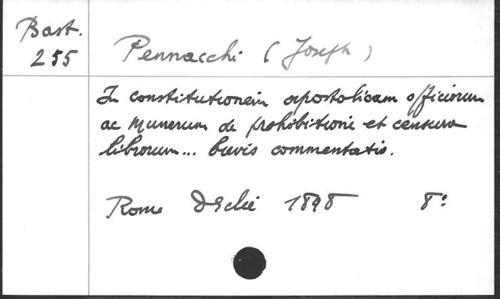 Bast.
255
Pennacchi (Joseph)
In constitutionem apostolicam officiorum
ac Munerum de prohibitione et censura
librorum... brevis commentatis.
Rome Desclée 1898 8°